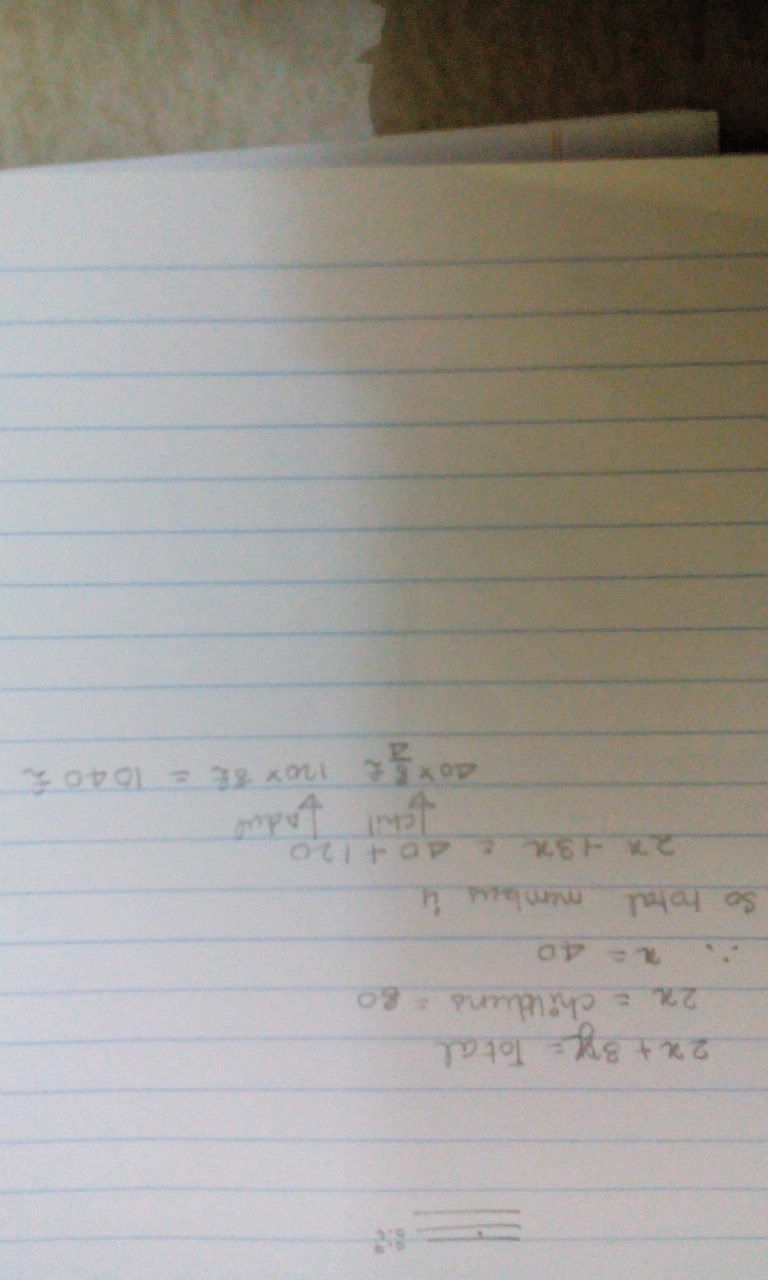 2x + 3x = Total
2x = childrens = 80
∴ x = 40
So total number is
2x + 3x = 40 + 120
↓chil ↓adul
40 x 8/4 £ 120 x 8£ = 1040 £